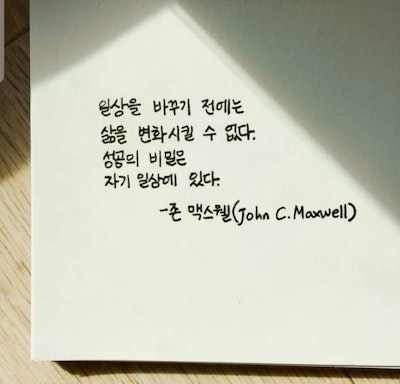 일상을 바꾸기 전에는
삶을 변화시킬 수 없다.
성공의 비밀은
자기 일상에 있다.
-존 맥스웰(John C. Maxwell)